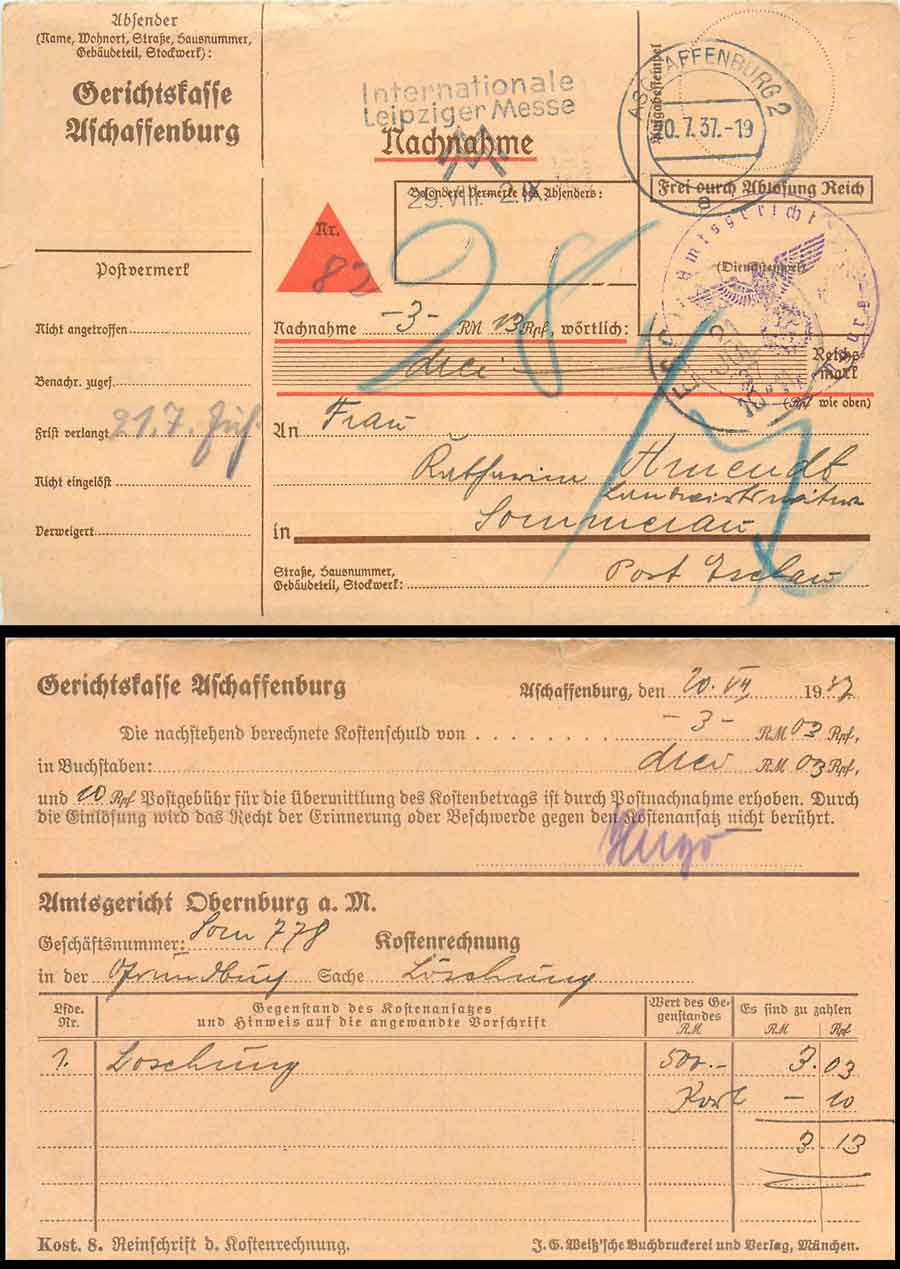 Absender
(Name, Wohnort, Straße, Hausnummer,
Gebäudeteil, Stockwerk):
Gerichtskasse
Aschaffenburg
Internationale
Leipziger Messe
29. VIII. 2. IX.
Nachnahme
ASCHAFFENBURG 2
20.7.37.-19
a
Ausgabestempel
Frei durch Ablösung Reich
Besondere Vermerke des Absenders:
Amtsgericht
(Dienststempel)
Nr.
82
28
Postvermerk
Nicht angetroffen
Benachr. zugef.
Frist verlangt 21.7.
Nicht eingelöst
Verweigert
Nachnahme -3- RM 13 Rpf, wörtlich:
drei Reichs-
mark
(Rpf wie oben)
An Frau
Katharina Amendt
Landwirtswitwe
in Sommerau
Straße, Hausnummer,
Gebäudeteil, Stockwerk: Post Eschau
Gerichtskasse Aschaffenburg
Aschaffenburg, den 20. VII 1937
Die nachstehend berechnete Kostenschuld von -3- RM 03 Rpf,
in Buchstaben: drei RM 03 Rpf,
und 10 Rpf Postgebühr für die Übermittlung des Kostenbetrags ist durch Postnachnahme erhoben. Durch
die Einlösung wird das Recht der Erinnerung oder Beschwerde gegen den Kostenansatz nicht berührt.
Hugo
Amtsgericht Obernburg a. M.
Geschäftsnummer: Som 778 Kostenrechnung
in der Grundbuch Sache Löschung
Lfde. Nr.
Gegenstand des Kostenansatzes
und Hinweis auf die angewandte Vorschrift
Wert des Ge-
genstandes
RM
Es sind zu zahlen
RM Rpf
1. Löschung 500.- 3. 03
Port - 10
3 13
Kost. 8. Reinschrift d. Kostenrechnung.
J. G. Weiß'sche Buchdruckerei und Verlag, München.